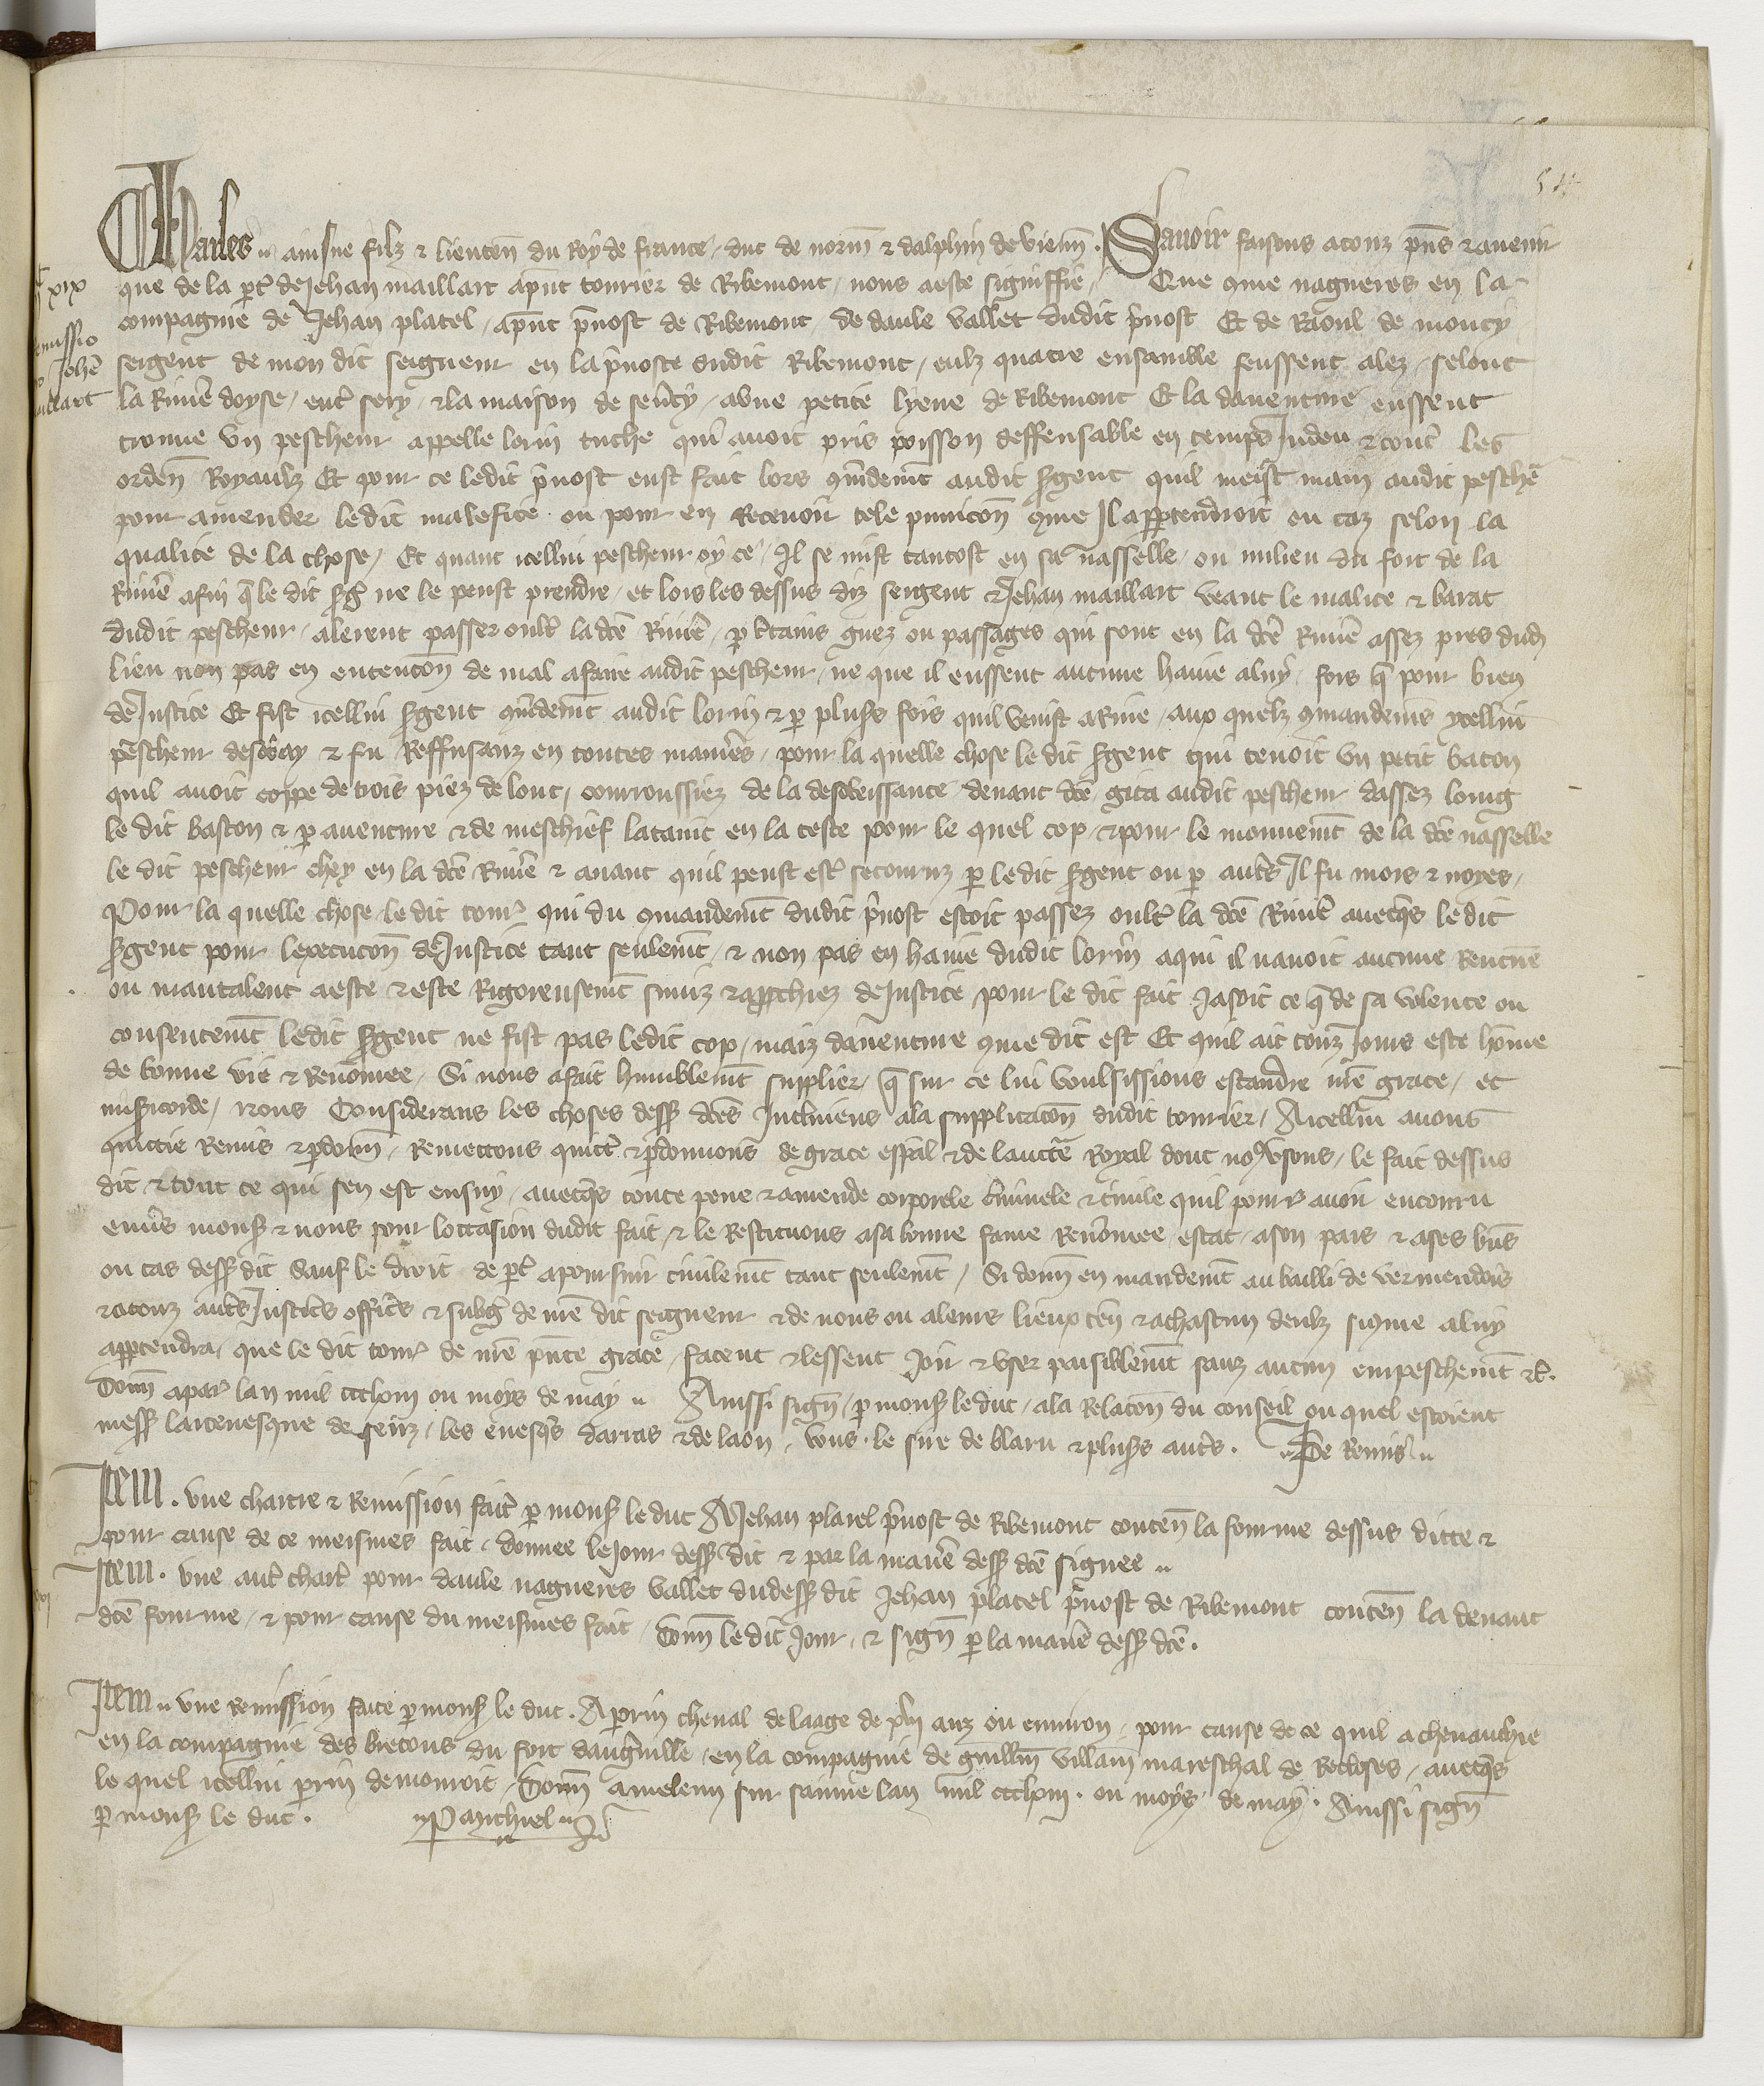 54
Charles ainsne filz & lieuten du Roy de france duc de norm & dalphin de vienn. Savoir faisons a touz pns & avenir
xix que de la pt de Jehan maillart apnt tourier de Ribemont nous a este signiffie Que come nagueres en la
compagnie de Jehan platel apnt pvost de Ribemont de daule vallet dudit pvost Et de Raoul de moucy
missio sergent de mon dit seigneur en la pvoste dudit Ribemont eulz quatre ensamble feussent alez selont
Jehe la Rivie doyse ent sery & la maison de sency a une petite lyeue de Ribemont Et la daventure eussent
illart trouve un pescheur appelle lorin tuche qui avoit pris poisson deffensable en temps Indeu & cont les
orden Royaulz Et pour ce ledit pvost eust fait lors comandemt audit sgent quil meist main audit pesche
pour amender ledit malefice ou pour en Recevoir tele punicon come Il appartendroit ou caz selon la
qualite de la chose Et quant icellui pescheur oy ce Il se mist tantost en sa nasselle ou milieu du fort de la
Rivie afin q le dit sg ne le peust prendre et lors les dessus diz sergent & Jehan maillart veant le malice & barat
dudit pescheur alerent passer oult la dce Rivie p ctains guez ou passages qui sont en la dce Rivie assez pres dud
lieu non pas en entencon de mal a faire audit pescheur ne que il eussent aucune haine a luy fors q pour bien
de Justice Et fist icellui sgent comandemt audit lorin & p pluss fois quil venist a Rive aux quelz comandemens ycellui
pescheur desobey & fu Reffusanz en toutes manies pour la quelle chose le dit sgent qui tenoit un petit baton
quil avoit coppe de trois piez de lonc courroussiez de la desobeissance devant dce gita audit pescheur dassez loing
le dit baston & p aventure & de meschief lataint en la teste pour le quel cop & pour le mouvemt de la dce nasselle
le dit pescheur chey en la dce Rivie & avant quil peust est secouruz p le dit sgent ou p auts Il fu mors & noyes
Pour la quelle chose le dit tour qui du comandemt dudit pvost estoit passez oult la dce Rivie avecqs le dit
sgent pour lexecucon de Justice tant seulemt & non pas en haine dudit lorin a qui il navoit aucune Rencune
ou mautalent a este & este Rigoreusemt suiz & approchiez de Justice pour le dit fait Jasoit ce q de sa volente ou
consentemt ledit sgent ne fist pas ledit cop maiz daventure come dit est Et quil ait touz Jours este home
de bonne vie & Renomee Si nous a fait humblemt supplier q sur ce lui voulsissions estandre nre grace et
misicorde Nous Considerans les choses dess dces Inclinens a la supplicacon dudit tourier A icellui avons
quictie Remis & pdonn Remettons quict & pdonnons de grace espal & de laucte Royal dont no usons le fait dessus
dit & tout ce qui sen est ensuy avecqs toute pene & amende corporele criminele & civile quil pour avoir encouru
envs mons & nous pour loccasion dudit fait & le Restituons a sa bonne fame Renomee estat a son pais & a ses bns
ou cas dess dit Sauf le droit de pt a poursuir civilemt tant seulemt Si donn en mandemt au bailli de vermendois
& a touz auts Justics offics & subg de nre dit seigneur & de nous ou a leurs lieux ten & a chascun deulz si come a luy
appartendra que le dit tour de nre pnte grace facent & lessent Joir & user paisiblemt sanz aucun empeschemt &c.
Donn a par lan mil ccclxiii ou moys de may Aussi sign p mons le duc a la Relacon du conseil ou quel estoient
mess larcevesque de senz les evesqs darras & de laon vous le sire de blaru & pluss auts. De Remis
Item. une chartre & Remission fait p mons le duc A Jehan platel pvost de Ribemont conten la fourme dessus ditte &
pour cause de ce meismes fait donnee le Jour dess dit & par la manie dess dce signee
Item. une aut chart pour daule nagueres vallet du dess dit Jehan platel pvost de Ribemont conten la devant
dce fourme & pour cause du meismes fait Donn le dit Jour & sign p la manie dess dce.
Item une remission faite p mons le duc. A perin cheval de laage de xvin anz ou environ pour cause de ce quil a chevauchie
en la compagnie des bretons du fort daugville en la compagnie de guillm villam mareschal de Recloses avecqs
le quel icellui perin demouroit Donn a meleun sur sainne lan mil ccclxiii. ou moys de may. Aussi sign
p mons le duc. Panchiel